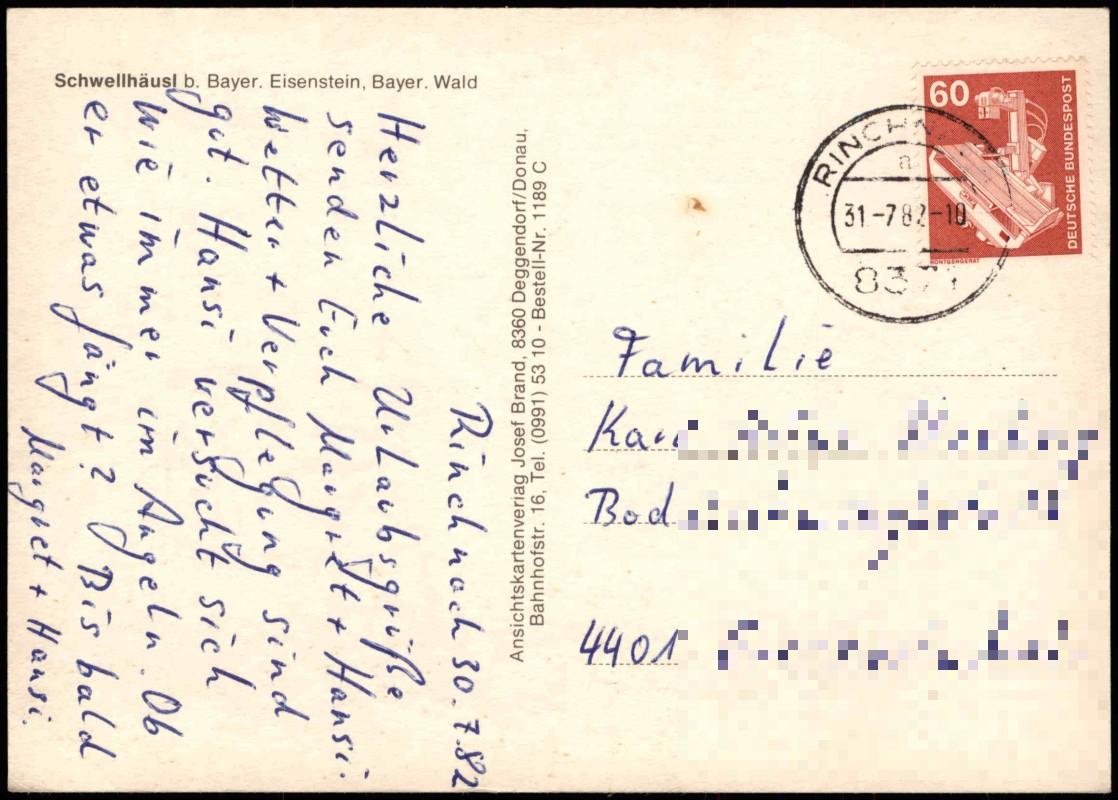 Schwellhäusl b. Bayer. Eisenstein, Bayer. Wald
Rinchnach 30.7.82
Herzliche Urlaubsgrüße
senden Euch Margret + Hansi.
Wetter + Verpflegung sind
gut. Hansi versucht sich
wie immer im Angeln. Ob
er etwas fängt? Bis bald
Margret + Hansi.
Ansichtskartenverlag Josef Brand, 8360 Deggendorf/Donau,
Bahnhofstr. 16, Tel. (0991) 53 10 - Bestell-Nr. 1189 C
60
DEUTSCHE BUNDESPOST
RÖNTGENGERÄT
a
31-7 82-10
8371
Familie
4401